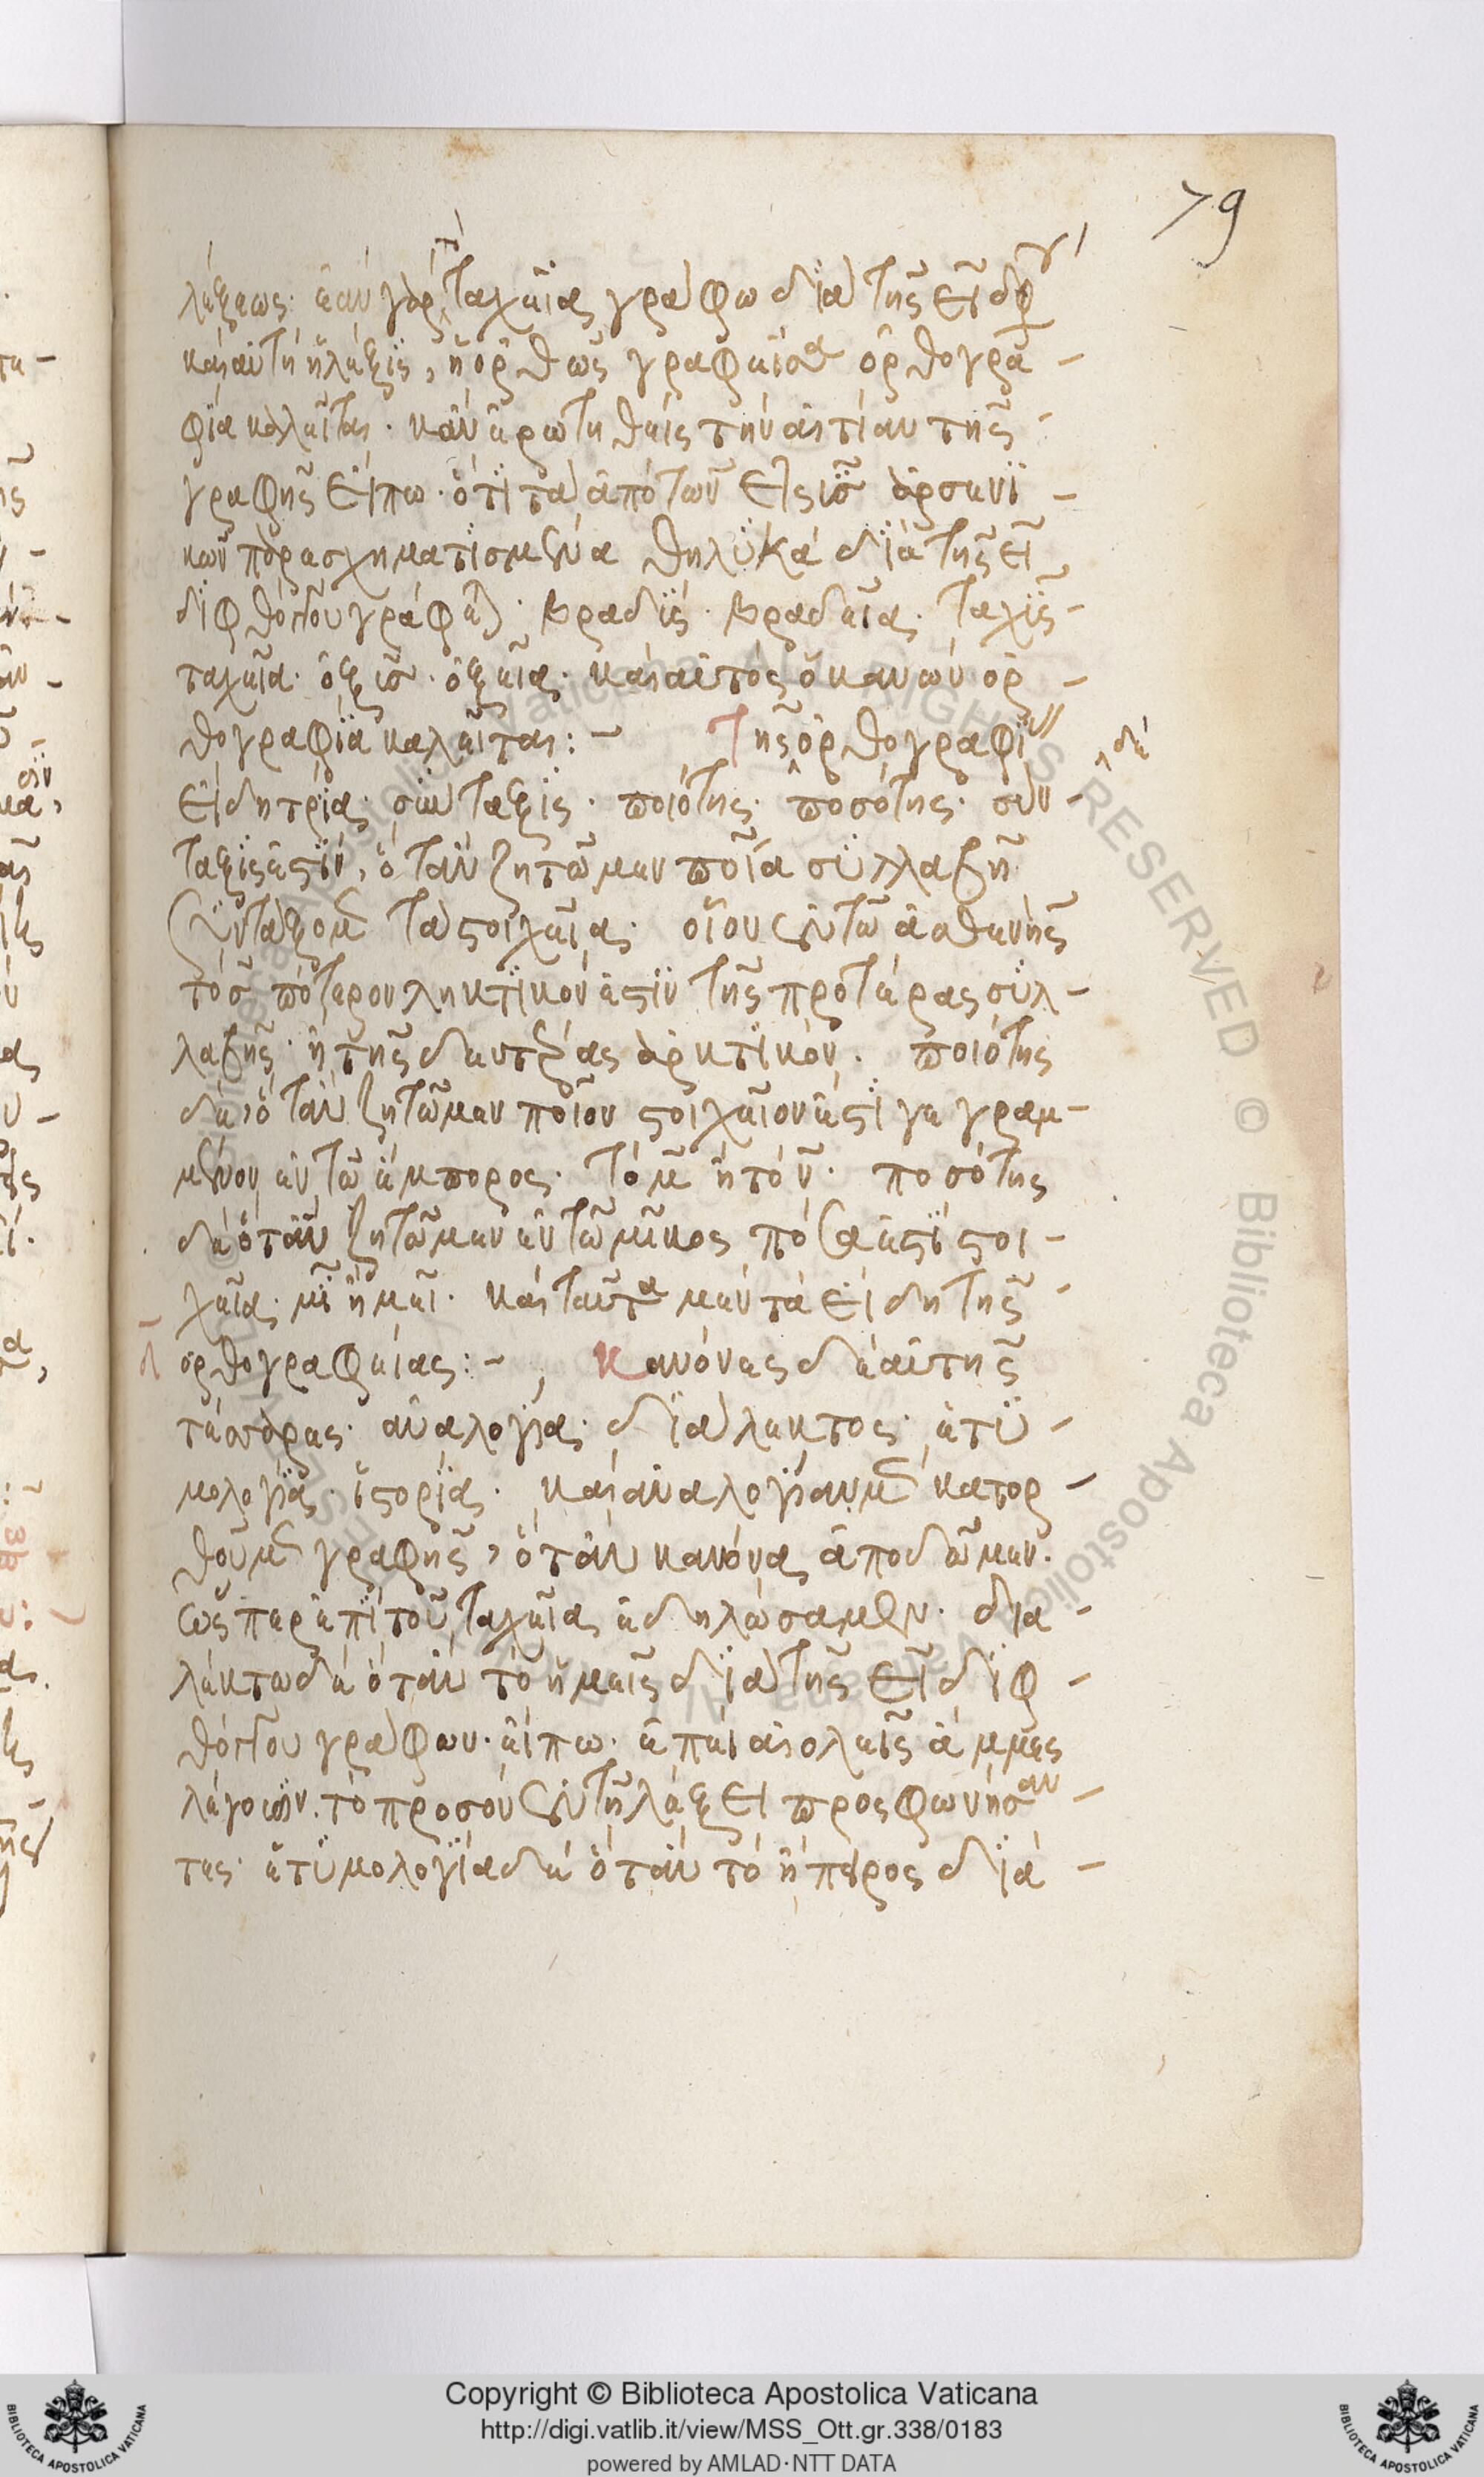 79
λέξεως· ἐὰν γὰρ τὸ ταχεῖα γράφω διὰ τῆς ει διφ
καὶ αὐτὴ ἡ λέξις, ἡ ὀρθῶς γραφεῖσα ὀρθογρα-
φία καλεῖται. κἂν ἐρωτηθεὶς τὴν αἰτίαν τῆς
γραφῆς εἴπω· ὅτι τὰ ἀπὸ τῶν εἰς ϊς ἀρσενι-
κῶν παρασχηματισμένα θηλυκὰ διὰ τῆς ει
διφθόγγου γράφεται· βραδὺς· βραδεῖα· ταχὺς-
ταχεῖα· ὀξὺς· ὀξεῖα· καὶ αὐτὸς ὁ κανὼν ὀρ-
θογραφία καλεῖται:- Τῆς ὀρθογραφίας
δὲ
εἴδη τρία· σύνταξις· ποιότης· ποσότης· σύν-
ταξίς ἐστιν, ὅταν ζητῶμεν ποία συλλαβῇ
συντάξομεν τὰ στοιχεῖα· οἷον ἐν τῶ ἀσθενὴς
τὸ σ πότερον ληκτικόν ἐστιν τῆς προτέρας συλ-
λαβῆς· ἢ τῆς δευτέρας ἀρκτικόν. ποιότης
δὲ, ὅταν ζητῶμεν ποῖον στοιχεῖον ἐστὶ γεγραμ-
μένον ἐν τῶ ἔμπορος· τὸ μ ἢ τὸ ν. ποσότης
δὲ ὅταν ζητῶμεν ἐν τῶ μῖκος πόσα ἐστὶ στοι-
χεῖα· μι ἢ μει. καὶ ταῦτα μὲν τὰ εἴδη τῆς
ὀρθογραφείας:- Κανόνες δὲ αὐτῆς
τέσσαρες· ἀναλογία· διάλεκτος· ἐτυ-
μολογία· ἱστορία. καὶ ἀναλογίαν μὲν κατορ-
θοῦμεν γραφῆς, ὅταν κανόνα ἀποδῶμεν.
ὥσπερ ἐπὶ τοῦ ταχεῖα ἐδηλώσαμεν. δια-
λέκτω δὲ ὅταν τὸ ἡμεῖς διὰ τῆς ει διφ-
θόγγου γράφων· εἴπω· ἐπεὶ αἰολεῖς ἄμμες
λέγουσιν. τὸ προσὸν ἐν τῆ λέξει προσφωνήσαν-
τες· ἐτυμολογία δὲ ὅταν τὸ ἤπειρος διὰ-
Copyright © Biblioteca Apostolica Vaticana
http://digi.vatlib.it/view/MSS_Ott.gr.338/0183
powered by AMLAD·NTT DATA